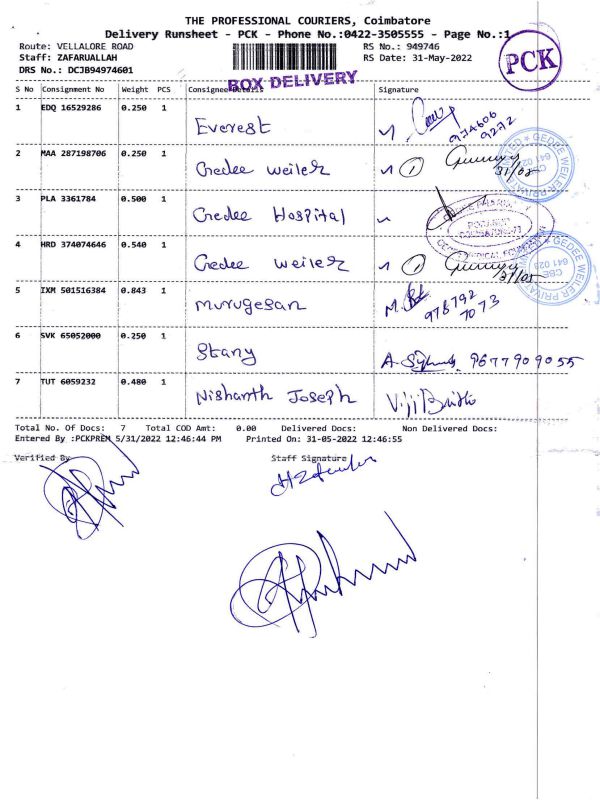 THE PROFESSIONAL COURIERS, Coimbatore
Delivery Runsheet - PCK - Phone No.:0422-3505555 - Page No.:1
Route: VELLALORE ROAD RS No.: 949746
Staff: ZAFARUALLAH RS Date: 31-May-2022
DRS No.: DCJB94974601
PCK
BOX DELIVERY
S No Consignment No Weight PCS Consignee Details Signature
1 EDQ 16529286 0.250 1 Everest
974606
9272
2 MAA 287198706 0.250 1 Gedee Weiler 1
GEDEE WEILER PRIVATE LIMITED
CBE
641 028
3 PLA 3361784 0.500 1 Gedee Hospital
4 HRD 374074646 0.540 1 Gedee Weiler 1
31/05
GEDEE WEILER PRIVATE LIMITED
CBE
641 028
5 IXM 501516384 0.843 1 Murugesan M.
978792
7073
6 SVK 65052000 0.250 1 Stany 9677909055
7 TUT 6059232 0.480 1 Nishanth Joseph
Total No. Of Docs: 7 Total COD Amt: 0.00 Delivered Docs: Non Delivered Docs:
Entered By :PCKPREM 5/31/2022 12:46:44 PM Printed On: 31-05-2022 12:46:55
Verified By Staff Signature